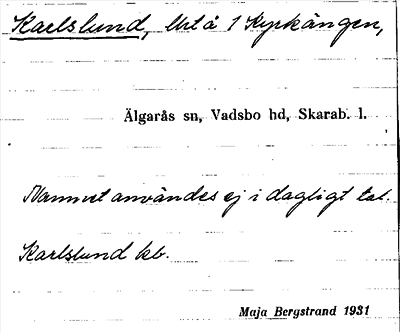 Karlslund, Urt å 1 Kyrkängen,
Älgarås sn, Vadsbo hd, Skarab. l.
Namnet användes ej i dagligt tal.
Karlslund kb.
Maja Bergstrand 1931